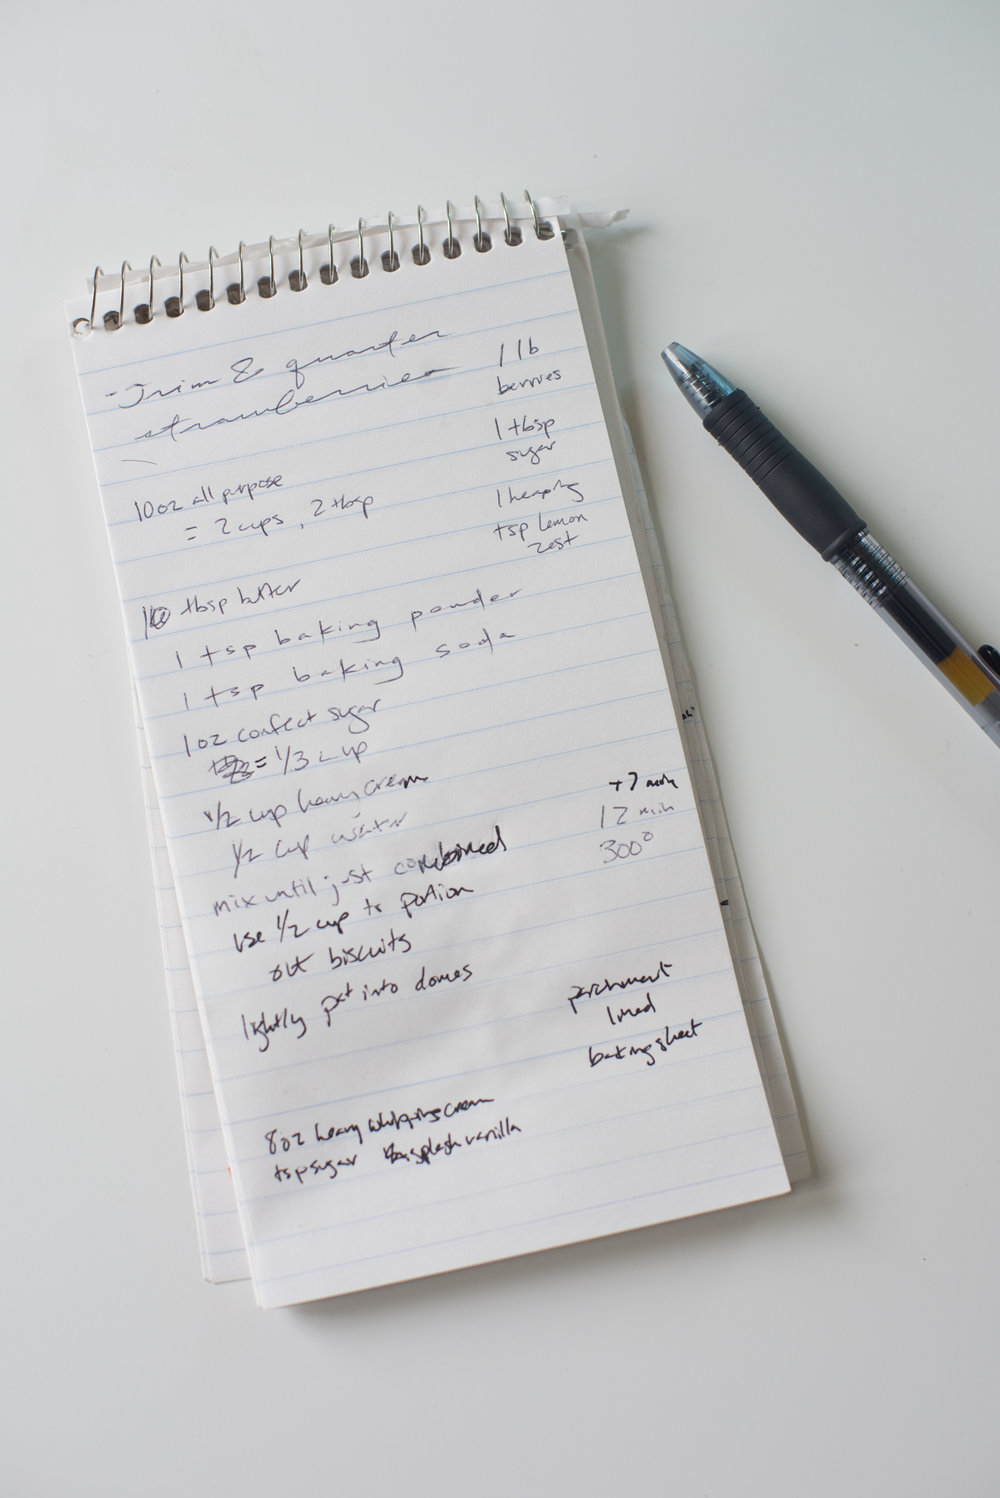 - Trim & quarter
strawberries
1 lb
berries
1 tbsp
sugar
1 heaping
tsp lemon
zest
10 oz all purpose
= 2 cups, 2 tbsp
tbsp butter
1 tsp baking powder
1 tsp baking soda
1 oz confect sugar
= 1/3 cup
1/2 cup heavy cream
1/2 cup water
mix until just combined
use 1/2 cup to portion
out biscuits
lightly pat into domes
+7
12 min
300°
parchment
lined
baking sheet
8 oz heavy whipping cream
tsp sugar splash vanilla